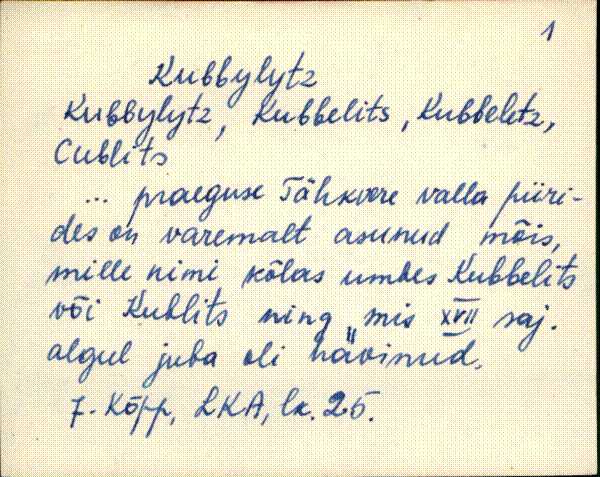 1
Kubbylytz
Kubbylytz, Kubbelits, Kubbeletz,
Cublits
... praeguse Tähkvere valla piiri-
des on varemalt asunud mõis,
mille nimi kõlas umbes Kubbelits
või Kublits ning „mis XVII saj.
algul juba oli hävinud.
J. Kõpp, LKA, lk. 25.